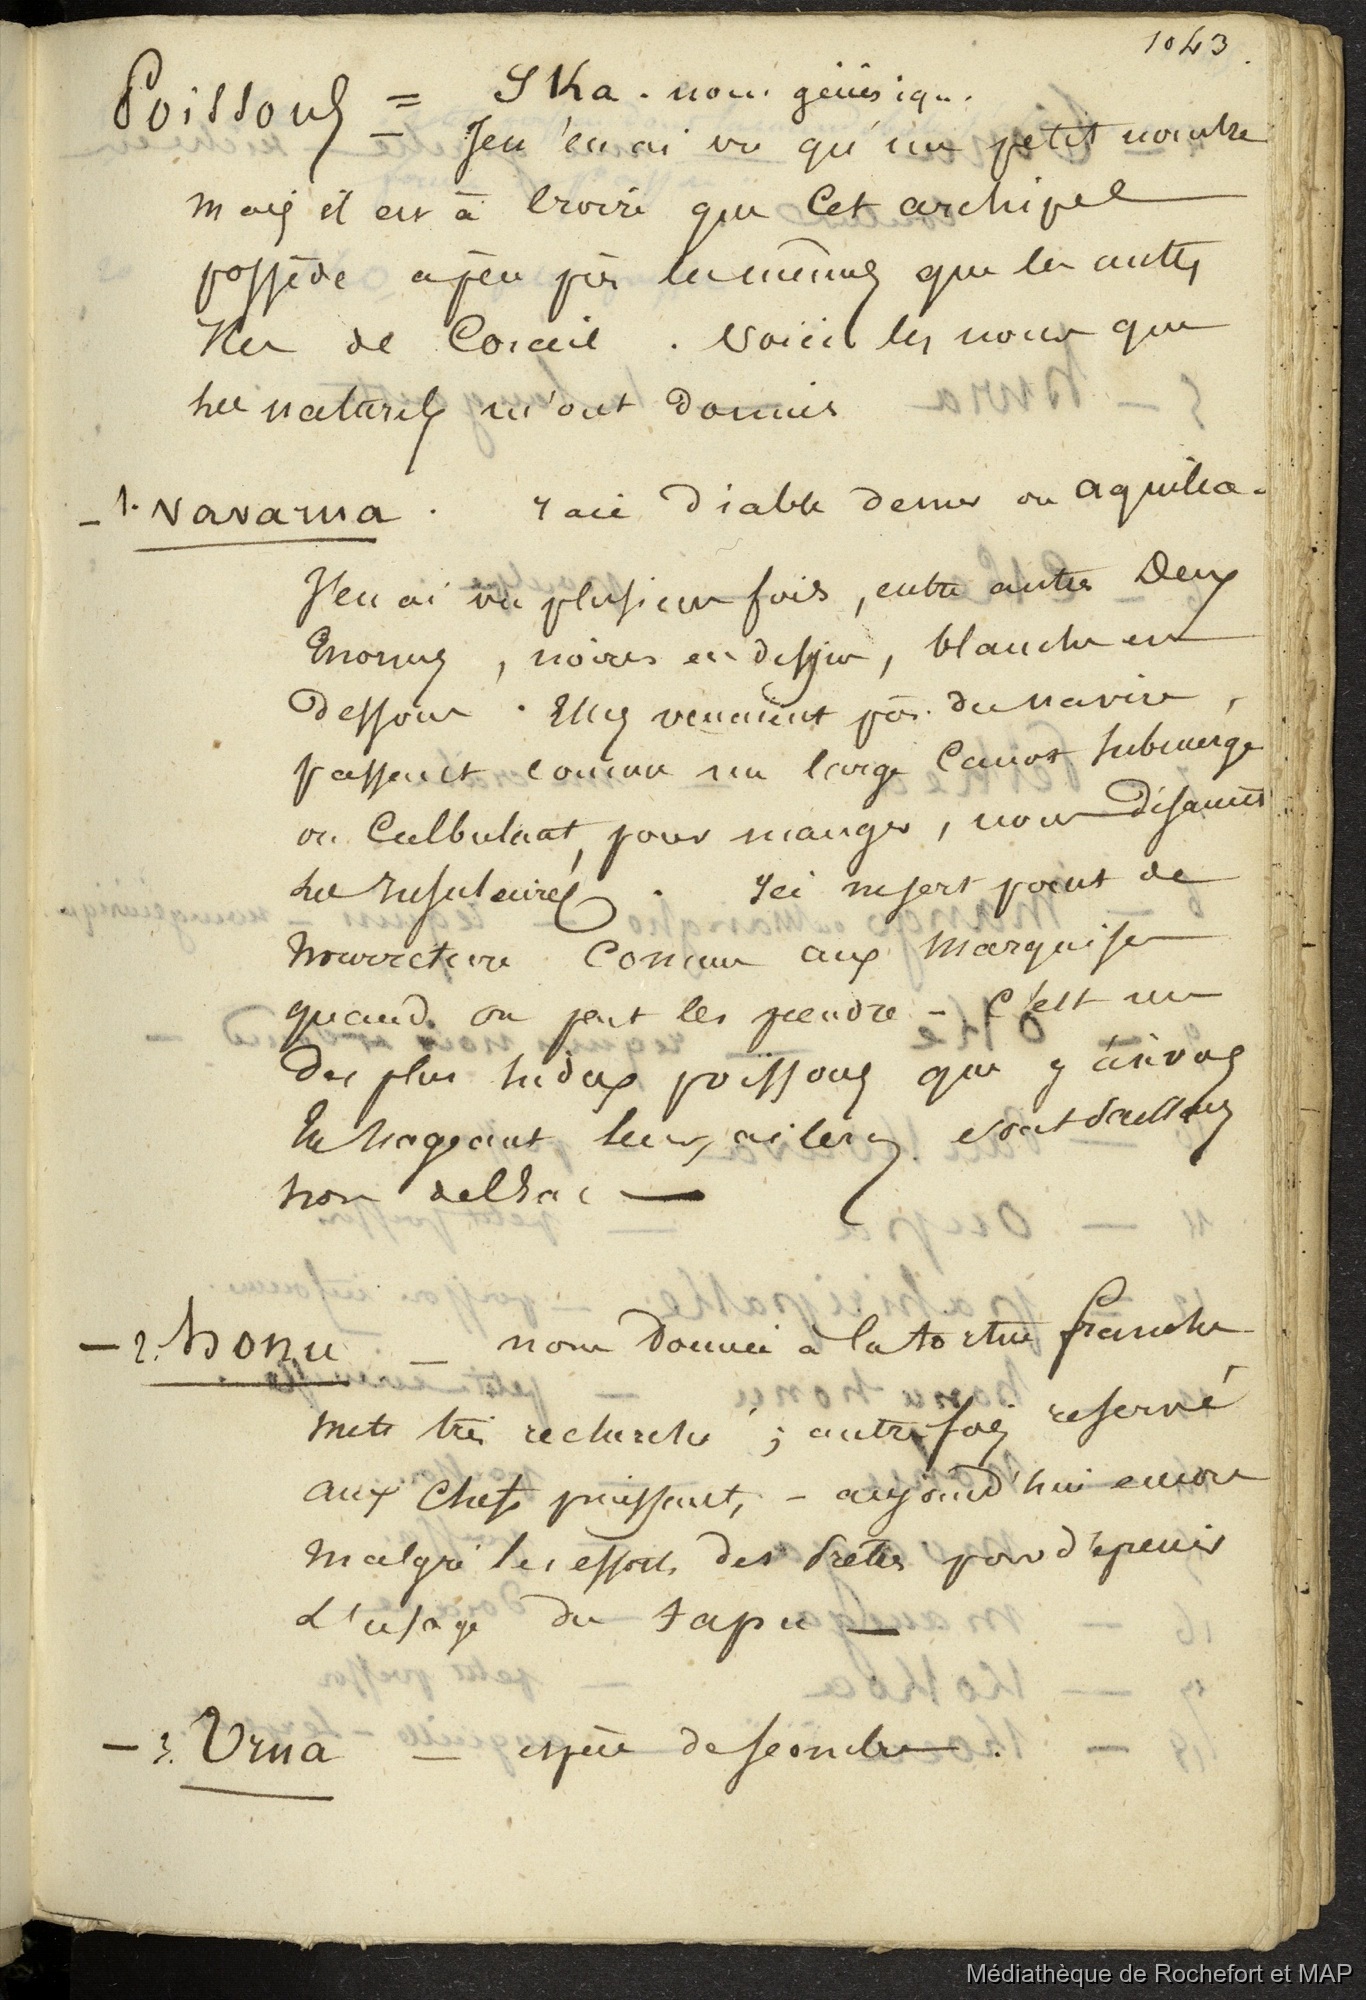 1043
Poissons = Ika. nom génériq.
Je n'en ai vu qu'un petit nombre
mais il est à croire que cet archipel
possède a peu près les mêmes que les autres
Iles de Corail. Voici les noms que
les naturels m'ont donnés
- 1. Vavarua. raie Diable de mer ou aquila.
J'en ai vu plusieurs fois, entre autres Deux
Enormes, noires en dessus, blanche en
Dessous. Elles venaient près du navire,
passent comme un large Canot submergé
ou Culbutant, pour manger, nous disaient
les Insulaires. Ici ne sert point de
nourriture comme aux Marquises
quand on peut les prendre - C'est un
des plus hideux poissons que
En nageant leurs ailerons
hors de l'eau —
- 2. honu - nom donné à la tortue franche
mets très recherché ; autrefois reservé
aux Chefs puissants, - aujourd'hui encore
malgré les efforts des Prêtres pour
L'usage du tapu —
- 3. Urua - espèce de scombre.
Médiathèque de Rochefort et MAP